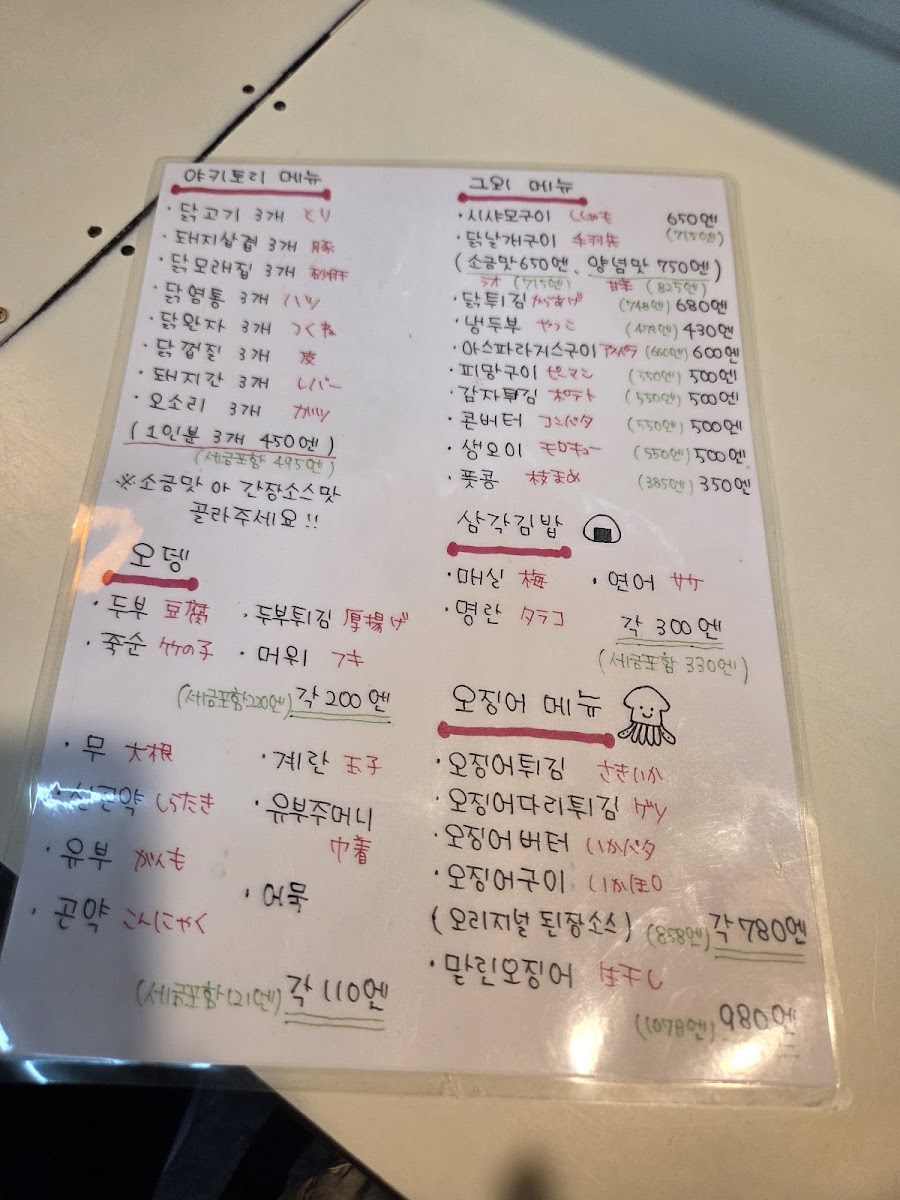 야키토리 메뉴
· 닭고기 3개 とり
· 돼지삼겹 3개 豚
· 닭모래집 3개 砂肝
· 닭염통 3개 ハツ
· 닭완자 3개 つくね
· 닭껍질 3개 皮
· 돼지간 3개 レバー
· 오소리 3개 ガツ
(1인분 3개 450엔)
(세금포함 495엔)
※소금맛 아 간장소스맛
골라주세요!!
오뎅
· 두부 豆腐 · 두부튀김 厚揚げ
· 죽순 竹の子 · 머위 フキ
(세금포함 220엔) 각 200엔
· 무 大根 · 계란 玉子
· 실곤약 しらたき · 유부주머니
巾着
· 유부 がんも
· 어묵
· 곤약 こんにゃく
(세금포함 121엔) 각 110엔
그외 메뉴
· 시샤모구이 ししゃも 650엔
(715엔)
· 닭날개구이 手羽先
(소금맛 650엔、양념맛 750엔)
(715엔) 甘辛 (825엔)
· 닭튀김 からあげ (748엔) 680엔
· 냉두부 やっこ 430엔
· 아스파라거스구이 アスパラ (660엔) 600엔
· 피망구이 ピーマン (550엔) 500엔
· 감자튀김 ポテト (550엔) 500엔
· 콘버터 コンバタ (550엔) 500엔
· 생오이 モロキュー (550엔) 500엔
· 풋콩 枝まめ (385엔) 350엔
삼각김밥
· 매실 梅 · 연어 サケ
· 명란 タラコ
각 300엔
(세금포함 330엔)
오징어 메뉴
· 오징어튀김 さきいか
· 오징어다리튀김 ゲソ
· 오징어버터 いかバタ
· 오징어구이
(오리지널 된장소스) (858엔) 각 780엔
· 말린오징어 生干し
(1078엔) 980엔